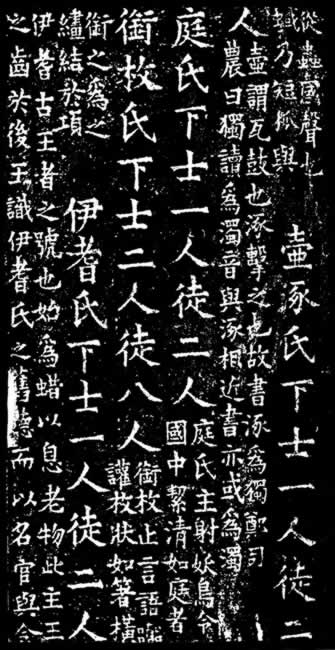 從蟲國聲也
蜮乃短狐與
壺涿氏下士一人徒二
人
壺謂瓦鼓也涿擊之也故書涿為獨鄭司
農曰獨讀為濁音與涿相近書亦或為濁
庭氏下士一人徒二人
庭氏主射妖鳥令
國中絜清如庭者
銜枚氏下士二人徒八人
銜枚止言語嘂
讙枚狀如箸橫
銜之為之
繣結於項
伊耆氏下士一人徒二人
伊耆古王者之號也始為蜡以息老物此主王
之齒杖後王識伊耆氏之舊德而以名官與今